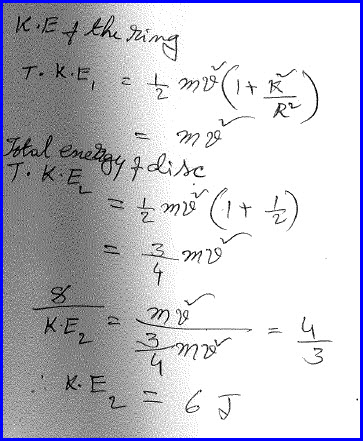 K.E of the ring
T. K.E₁ = 1/2 mv² (1 + K²/R²)
= mv²
Total energy of disc
T. K.E₂
= 1/2 mv² (1 + 1/2)
= 3/4 mv²
8/K.E₂ = mv²/(3/4 mv²) = 4/3
∴ K.E₂ = 6 J